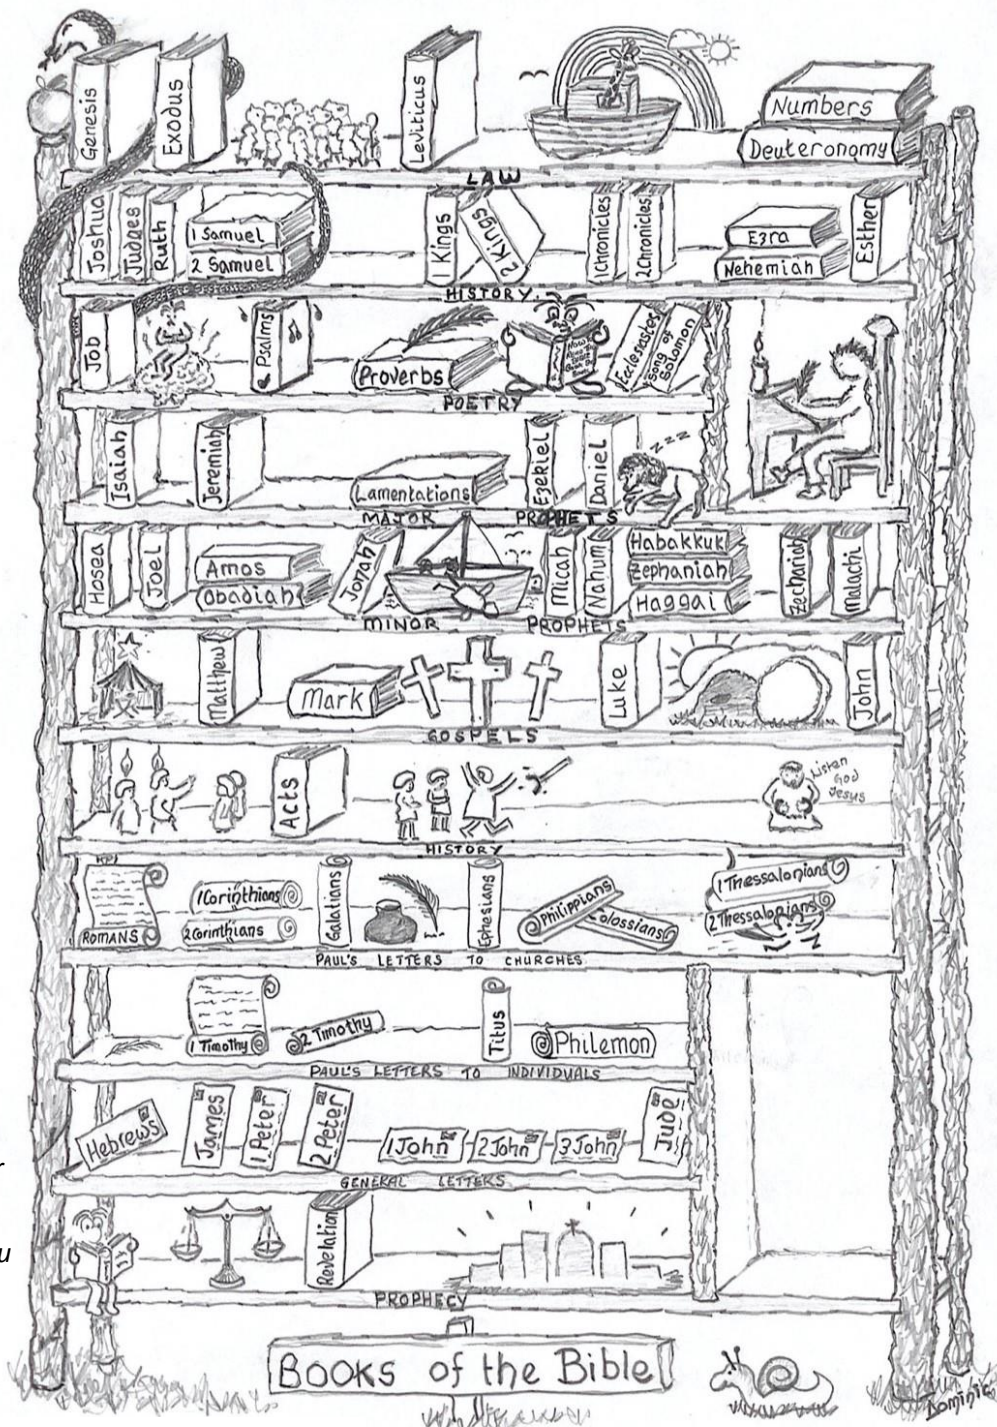 Genesis
Exodus
Leviticus
Numbers
Deuteronomy
LAW
Joshua
Judges
Ruth
1 Samuel
2 Samuel
1 Kings
2 Kings
1 Chronicles
2 Chronicles
Ezra
Nehemiah
Esther
HISTORY.
Job
Psalms
Proverbs
Ecclesiastes
Song of Solomon
POETRY
Isaiah
Jeremiah
Lamentations
Ezekiel
Daniel
zzz
MAJOR PROPHETS
Hosea
Joel
Amos
Obadiah
Jonah
Micah
Nahum
Habakkuk
Zephaniah
Haggai
Zechariah
Malachi
MINOR PROPHETS
Matthew
Mark
Luke
John
GOSPELS
Acts
Listen
God
Jesus
HISTORY
ROMANS
1 Corinthians
2 Corinthians
Galatians
Ephesians
Philippians
Colossians
1 Thessalonians
2 Thessalonians
PAUL'S LETTERS TO CHURCHES
1 Timothy
2 Timothy
Titus
Philemon
PAUL'S LETTERS TO INDIVIDUALS
Hebrews
James
1 Peter
2 Peter
1 John
2 John
3 John
Jude
GENERAL LETTERS
Revelation
PROPHECY
BOOKS of the Bible
Dominic